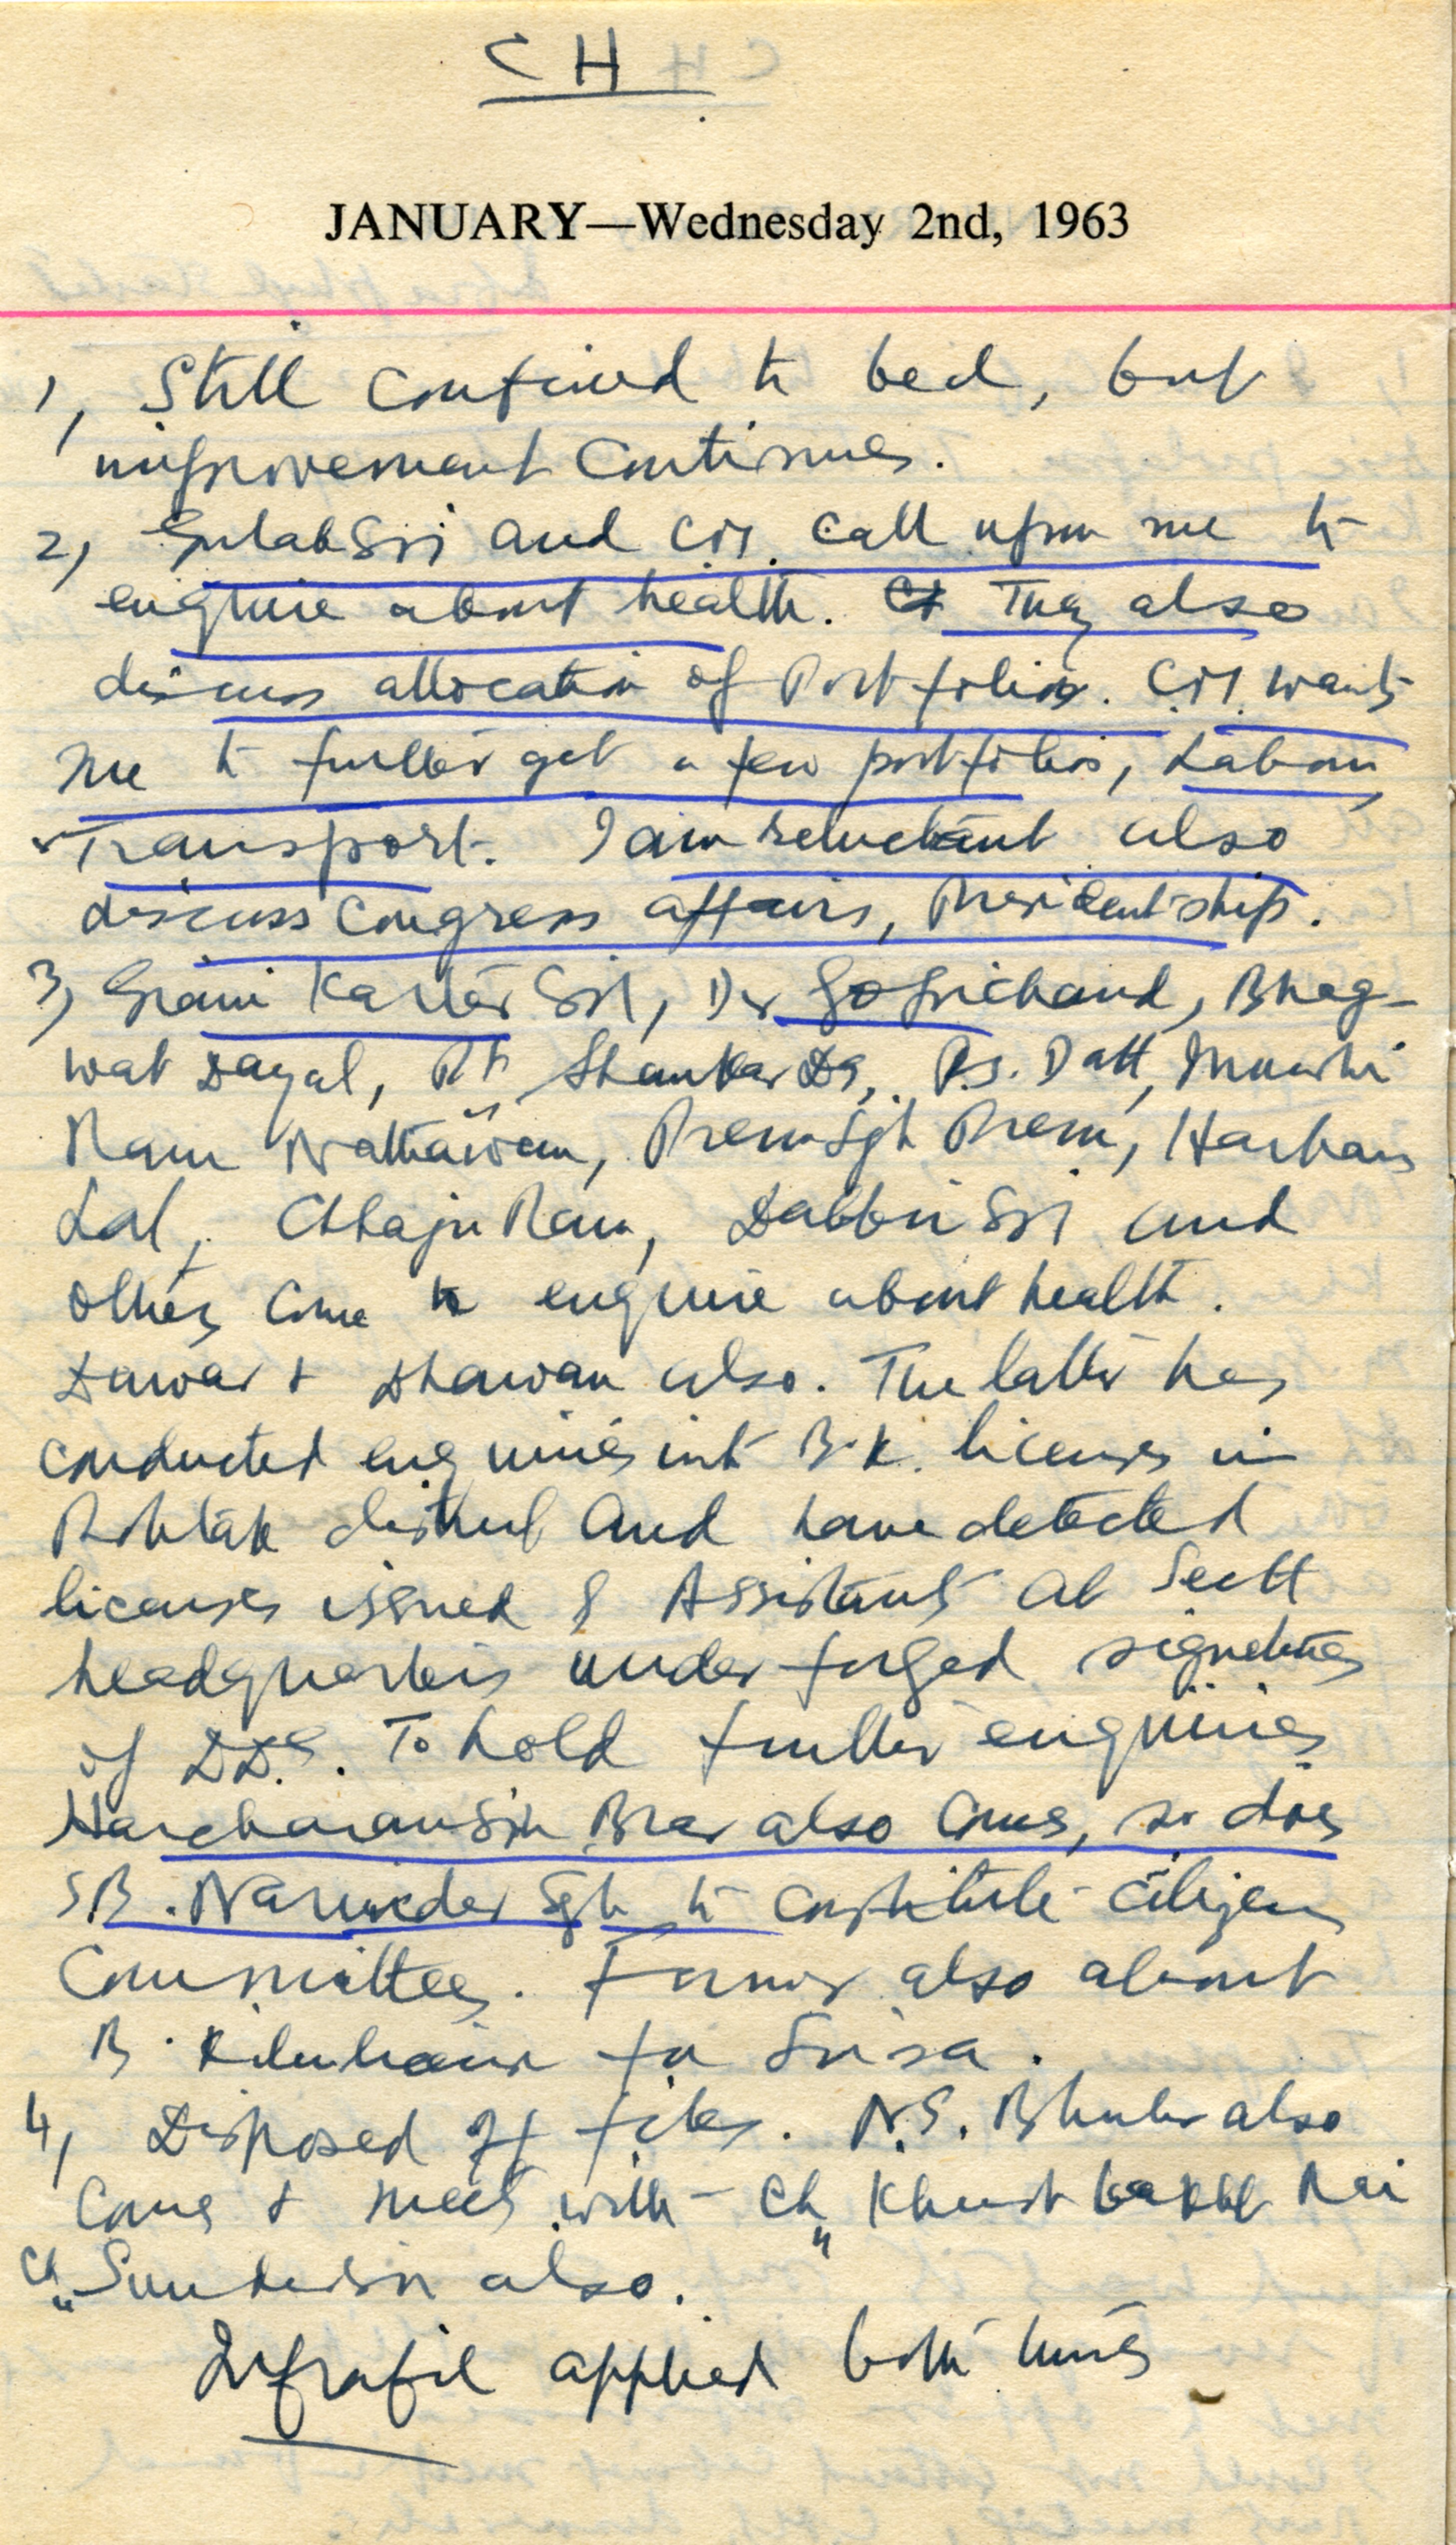 CH
JANUARY—Wednesday 2nd, 1963
1, Still confined to bed, but
improvement continues.
2, Gulab Sgh and CM. call upon me to
enquire about health. They also
discuss allocation of Portfolios. C.M. wants
me to further get a few portfolios, Labour,
Transport. I am reluctant also
discuss Congress affairs, Presidentship.
3, Giani Kartar Sgh, Dr Gopichand, Bhag-
wat Dayal, Pt Shankar Ds, P.S. Datt, Munshi
Ram Nathawan, Prem Sgh Prem, Harbans
Lal, Chhaju Ram, Dalbir Sgh and
others come to enquire about health.
Dawar & Dhawan also. The latter has
conducted enquiries into B.K. licenses in
Rohtak district and have detected
licenses issued & Assistants at Sectt
headquarters under forged signatures
of DDS. To hold further enquiries
Harcharan Sgh Brar also comes, so does
SB. Narinder Sgh to constitute citizens
Committees. Former also about
B. for Sirsa.
4, Disposed of files. N.S. Bhuller also
comes & meets with Ch Khust bakht Rai
Ch Sunder Sgh also.
applied both times